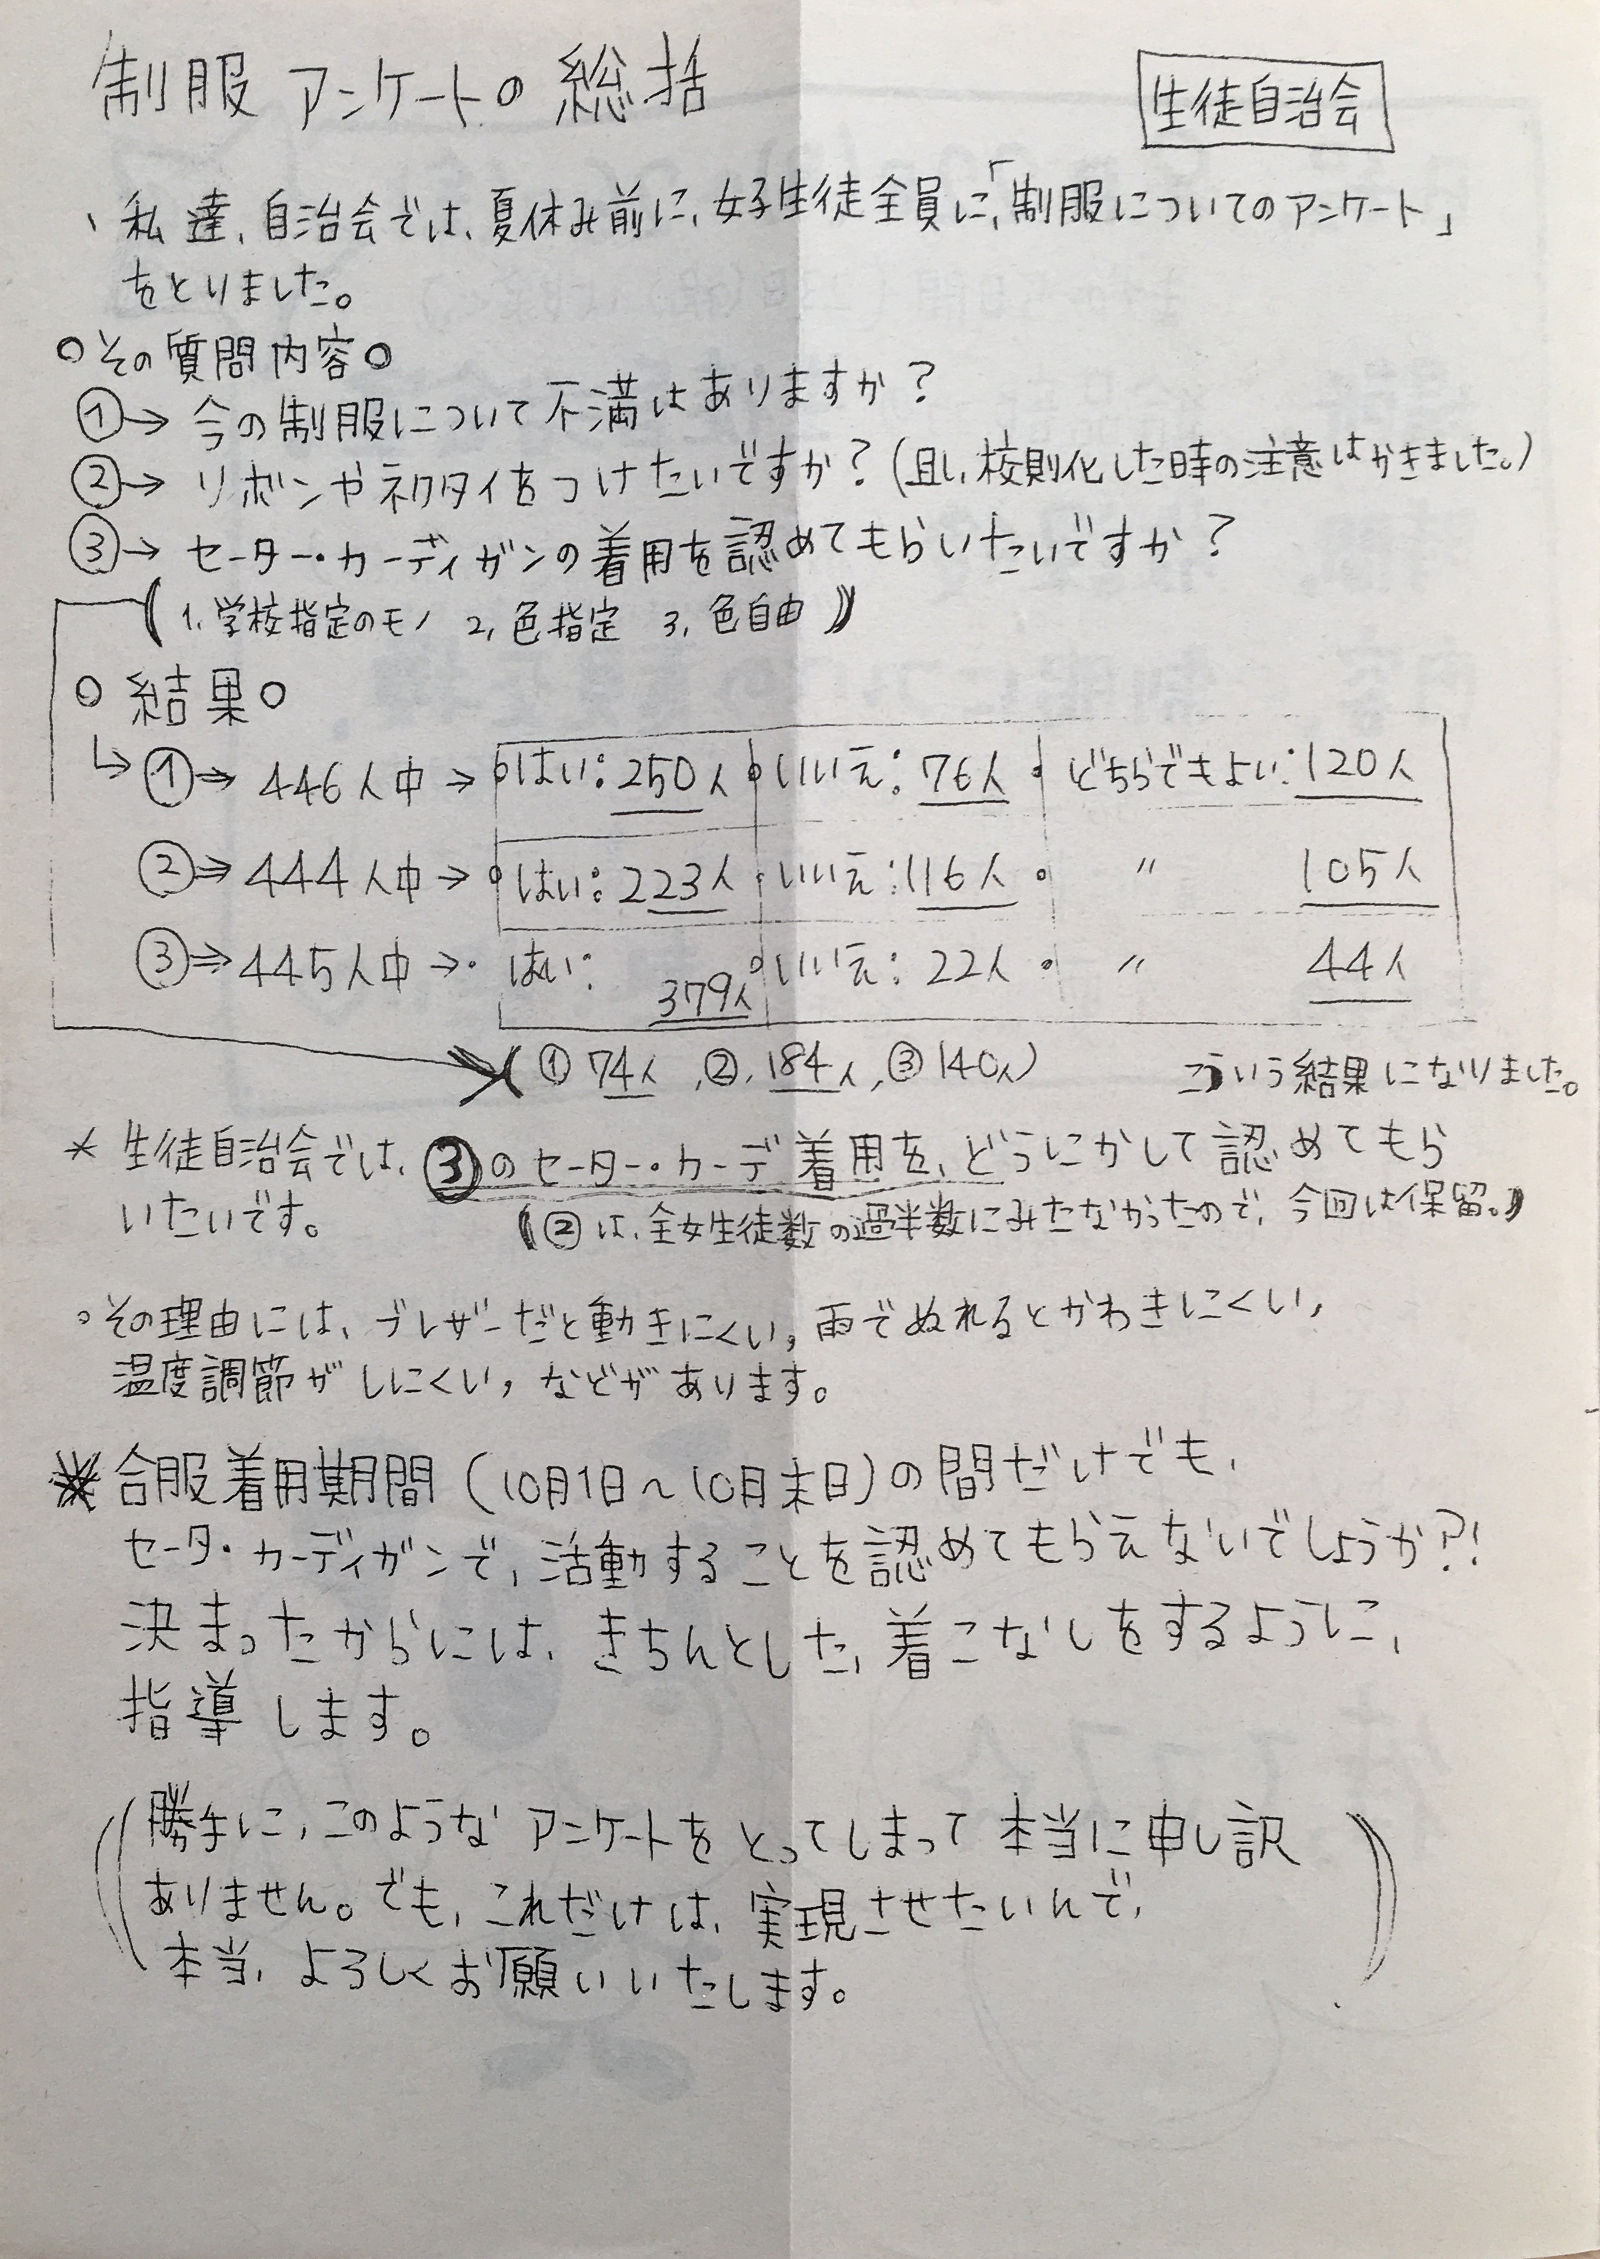 制服アンケートの総括
生徒自治会
、私達、自治会では、夏休み前に、女子生徒全員に、「制服についてのアンケート」
をとりました。
○その質問内容○
①→ 今の制服について不満はありますか?
②→ リボンやネクタイをつけたいですか?(且し、校則化した時の注意はかきました。)
③→ セーター・カーディガンの着用を認めてもらいたいですか?
(1.学校指定のモノ 2.色指定 3.色自由)
○結果○
↳①⇒ 446人中→ ○はい:250人 ○いいえ:76人 ・どちらでもよい:120人
②⇒ 444人中→ ○はい:223人 ・いいえ:116人 ○ 〃 105人
③⇒ 445人中→・はい:379人 ○いいえ:22人 ○ 〃 44人
(①74人、②.184人、③140人)
こういう結果になりました。
* 生徒自治会では、③のセーター・カーデ着用を、どうにかして認めてもら
いたいです。
(②は、全女生徒数の過半数にみたなかったので、今回は保留。)
○その理由には、ブレザーだと動きにくい,雨でぬれるとかわきにくい,
温度調節がしにくい,などがあります。
※合服着用期間(10月1日〜10月末日)の間だけでも、
セータ・カーディガンで、活動することを認めてもらえないでしょうか?!
決まったからには、きちんとした、着こなしをするように、
指導します。
(勝手に,このようなアンケートをとってしまって本当に申し訳
ありません。でも、これだけは、実現させたいんで、
本当、よろしくお願いいたします。)